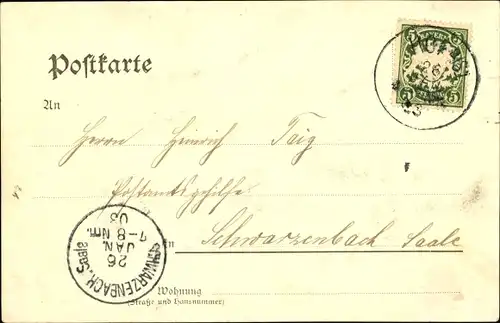 Postkarte
5 BAYERN 5
26
An
Herrn Heinrich Taig
Postamtsgehilfe
in Schwarzenbach Saale
SCHWARZENBACH. Saale
26
JAN.
7-8 Nm.
03
Wohnung
(Straße und Hausnummer)